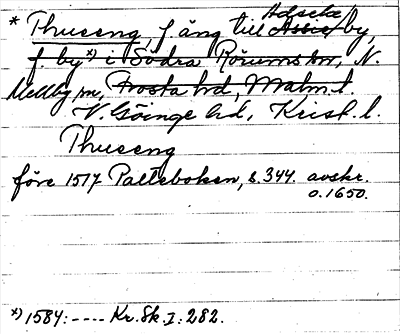 Adseke
* Thuseng, f. äng till Assie by,
f. by *) i Södra Rörums sn, N.
Mellby sn, Frosta hd, Malm. l.
V. Göinge hd, Krist. l.
Thuseng
före 1517 Palteboken, s. 344. avskr.
o. 1650.
*) 1584: ---- Kr. Sk. I: 282.